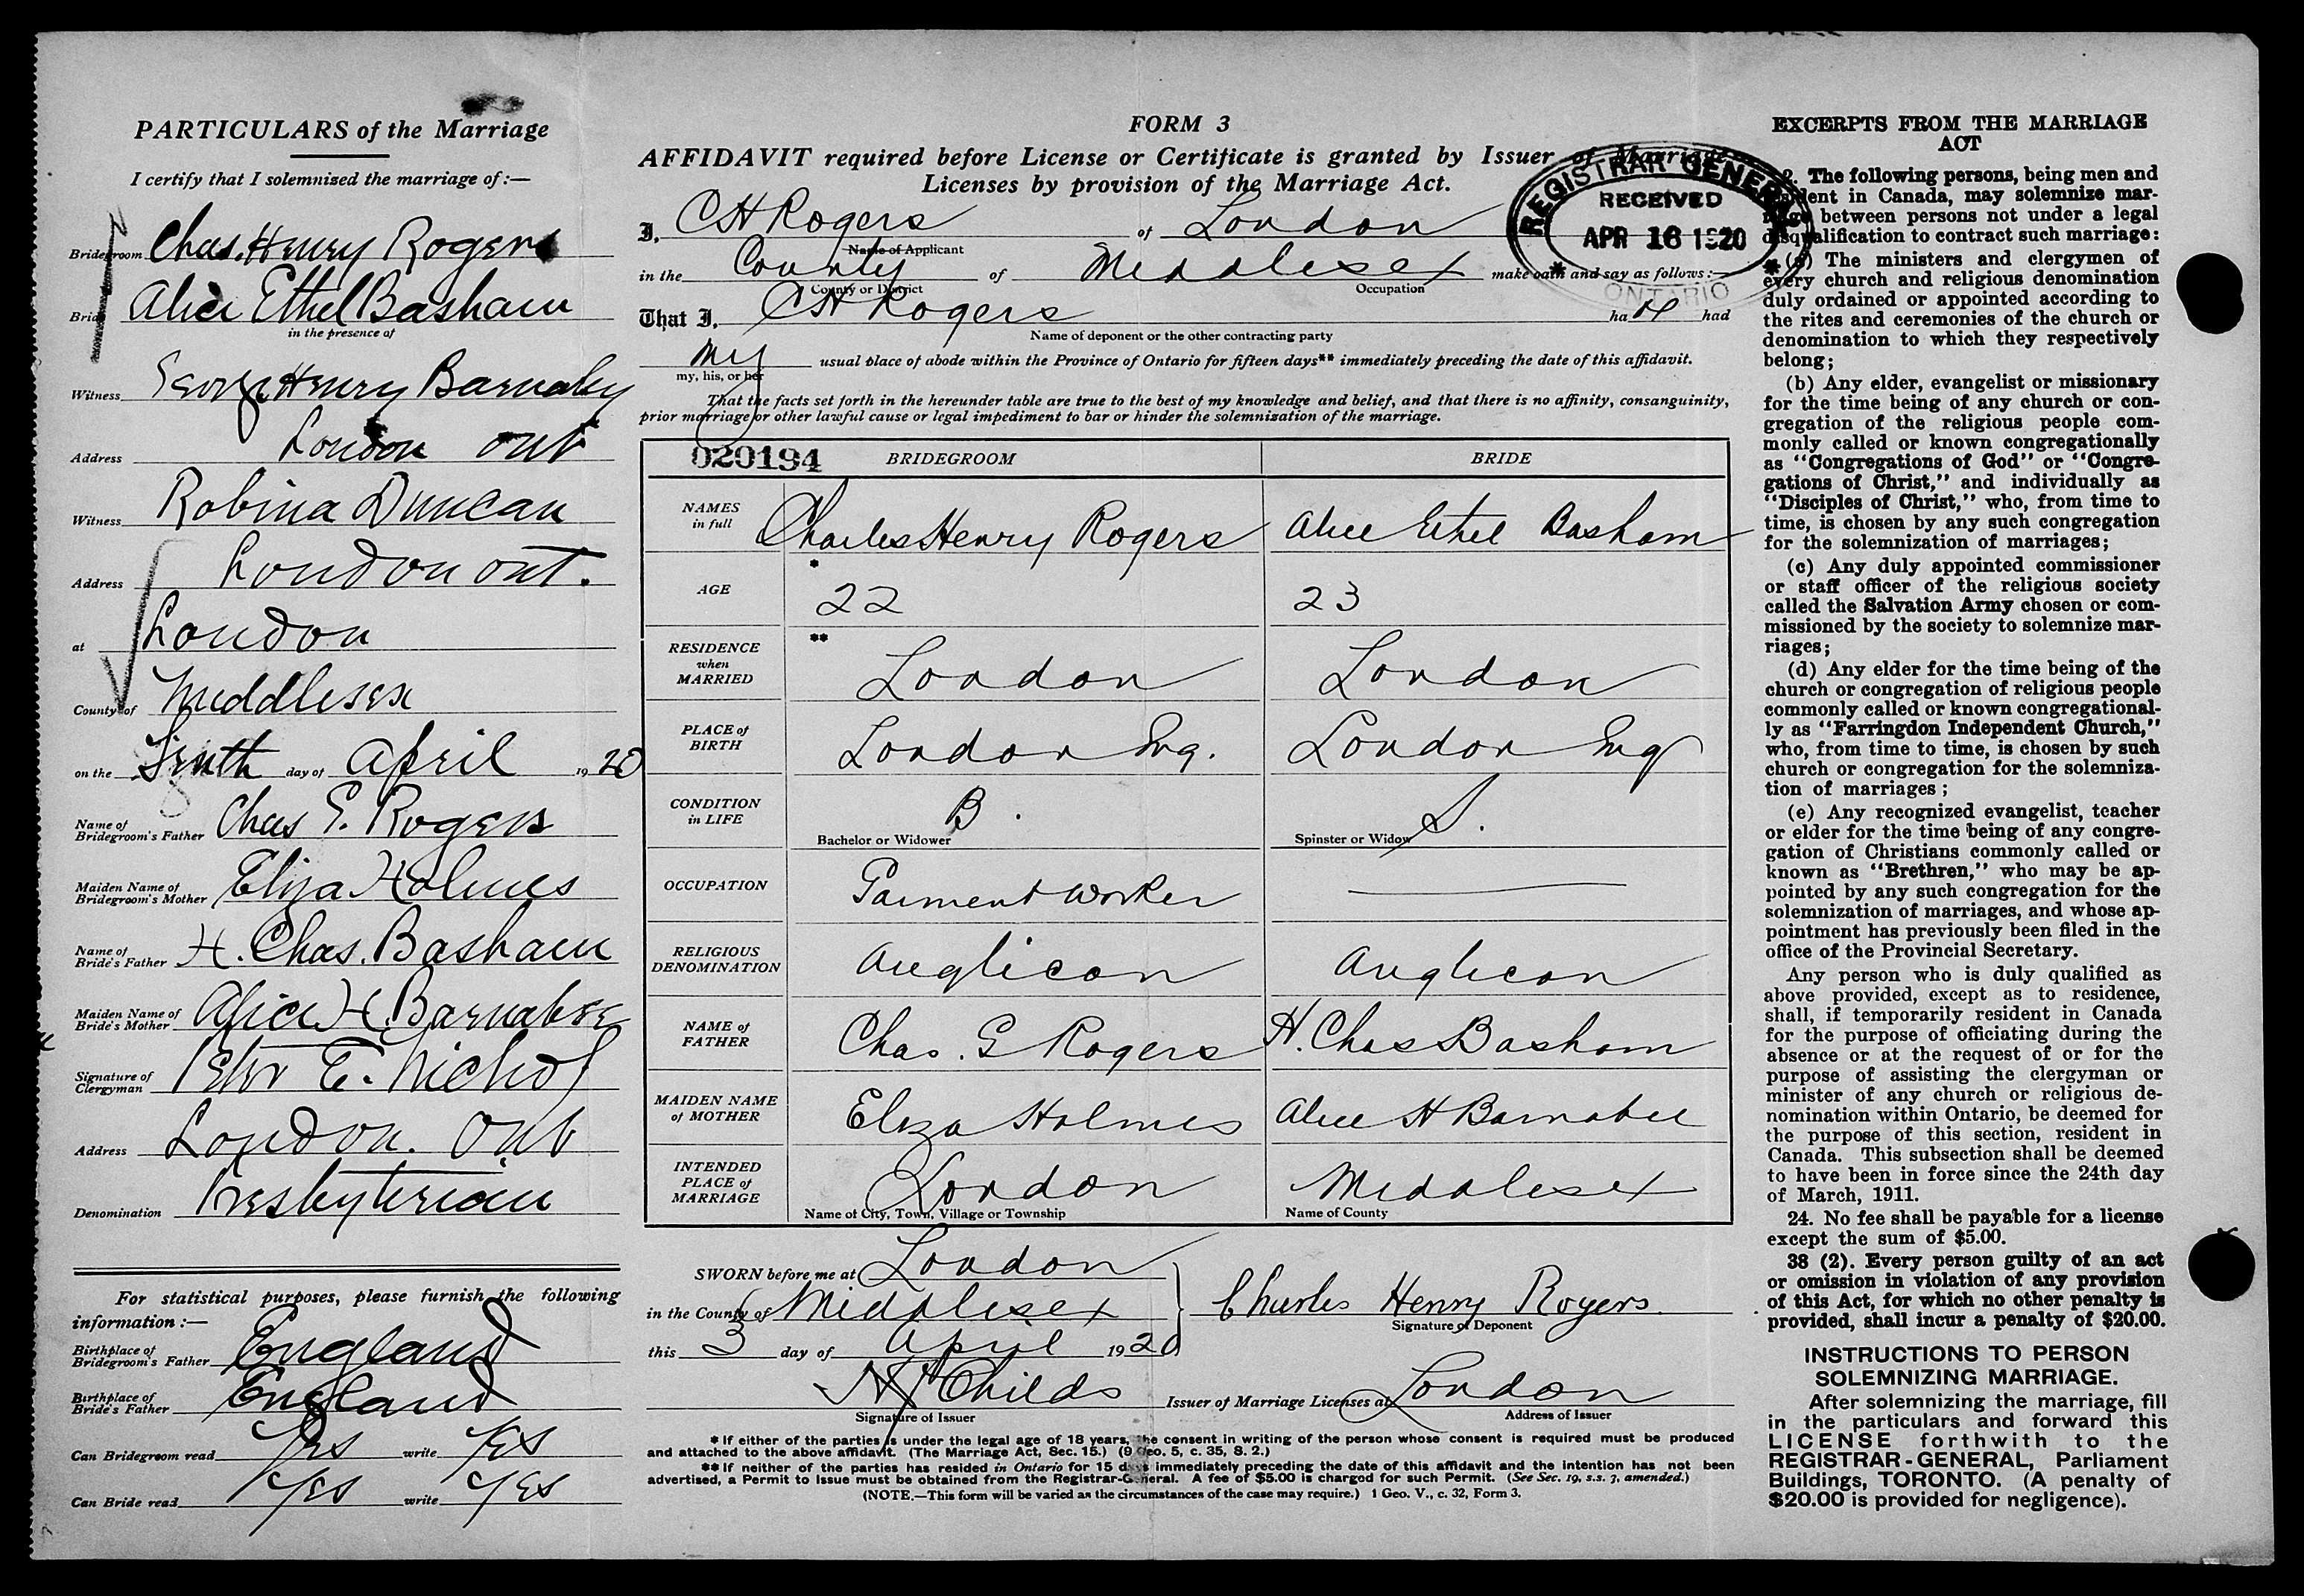 PARTICULARS of the Marriage
I certify that I solemnized the marriage of:—
Bridegroom Chas. Henry Rogers
Bride Alice Ethel Basham
in the presence of
Witness George Henry Barnaby
Address London Ont
Witness Robina Duncan
Address London Ont.
at London
County of Middlesex
on the Tenth day of April 1920
Name of Bridegroom's Father Chas E. Rogers
Maiden Name of Bridegroom's Mother Eliza Holmes
Name of Bride's Father H. Chas. Basham
Maiden Name of Bride's Mother Alice H. Barnabee
Signature of Clergyman Peter E. Nichol
Address London. Ont
Denomination Presbyterian
For statistical purposes, please furnish the following
information :—
Birthplace of Bridegroom's Father England
Birthplace of Bride's Father England
Can Bridegroom read Yes write Yes
Can Bride read Yes write Yes
FORM 3
AFFIDAVIT required before License or Certificate is granted by Issuer of Marriage
Licenses by provision of the Marriage Act.
REGISTRAR GENERAL
RECEIVED
APR 16 1920
ONTARIO
I, C H Rogers of London
Name of Applicant
in the County of Middlesex make oath and say as follows:—
County or District Occupation
That I, C H Rogers ha had
Name of deponent or the other contracting party
my usual place of abode within the Province of Ontario for fifteen days** immediately preceding the date of this affidavit.
my, his, or her
That the facts set forth in the hereunder table are true to the best of my knowledge and belief, and that there is no affinity, consanguinity,
prior marriage or other lawful cause or legal impediment to bar or hinder the solemnization of the marriage.
020194 BRIDEGROOM BRIDE
NAMES in full Charles Henry Rogers Alice Ethel Basham
AGE * 22 23
RESIDENCE when MARRIED ** London London
PLACE of BIRTH London Eng. London Eng
CONDITION in LIFE B. S.
Bachelor or Widower Spinster or Widow
OCCUPATION Garment Worker
RELIGIOUS DENOMINATION Anglican Anglican
NAME of FATHER Chas. E Rogers H. Chas Basham
MAIDEN NAME of MOTHER Eliza Holmes Alice H Barnabee
INTENDED PLACE of MARRIAGE London Middlesex
Name of City, Town, Village or Township Name of County
SWORN before me at London
in the County of Middlesex
Charles Henry Rogers
Signature of Deponent
this 3 day of April 1920
Childs Issuer of Marriage Licenses at London
Signature of Issuer Address of Issuer
* If either of the parties is under the legal age of 18 years, the consent in writing of the person whose consent is required must be produced
and attached to the above affidavit. (The Marriage Act, Sec. 15.) (9 Geo. 5, c. 35, S. 2.)
** If neither of the parties has resided in Ontario for 15 days immediately preceding the date of this affidavit and the intention has not been
advertised, a Permit to Issue must be obtained from the Registrar-General. A fee of $5.00 is charged for such Permit. (See Sec. 19, s.s. 3, amended.)
(NOTE.—This form will be varied as the circumstances of the case may require.) 1 Geo. V., c. 32, Form 3.
EXCERPTS FROM THE MARRIAGE
ACT
2. The following persons, being men and
resident in Canada, may solemnize mar-
riage between persons not under a legal
disqualification to contract such marriage:
(a) The ministers and clergymen of
every church and religious denomination
duly ordained or appointed according to
the rites and ceremonies of the church or
denomination to which they respectively
belong;
(b) Any elder, evangelist or missionary
for the time being of any church or con-
gregation of the religious people com-
monly called or known congregationally
as "Congregations of God" or "Congre-
gations of Christ," and individually as
"Disciples of Christ," who, from time to
time, is chosen by any such congregation
for the solemnization of marriages;
(c) Any duly appointed commissioner
or staff officer of the religious society
called the Salvation Army chosen or com-
missioned by the society to solemnize mar-
riages;
(d) Any elder for the time being of the
church or congregation of religious people
commonly called or known congregational-
ly as "Farringdon Independent Church,"
who, from time to time, is chosen by such
church or congregation for the solemniza-
tion of marriages ;
(e) Any recognized evangelist, teacher
or elder for the time being of any congre-
gation of Christians commonly called or
known as "Brethren," who may be ap-
pointed by any such congregation for the
solemnization of marriages, and whose ap-
pointment has previously been filed in the
office of the Provincial Secretary.
Any person who is duly qualified as
above provided, except as to residence,
shall, if temporarily resident in Canada
for the purpose of officiating during the
absence or at the request of or for the
purpose of assisting the clergyman or
minister of any church or religious de-
nomination within Ontario, be deemed for
the purpose of this section, resident in
Canada. This subsection shall be deemed
to have been in force since the 24th day
of March, 1911.
24. No fee shall be payable for a license
except the sum of $5.00.
38 (2). Every person guilty of an act
or omission in violation of any provision
of this Act, for which no other penalty is
provided, shall incur a penalty of $20.00.
INSTRUCTIONS TO PERSON
SOLEMNIZING MARRIAGE.
After solemnizing the marriage, fill
in the particulars and forward this
LICENSE forthwith to the
REGISTRAR-GENERAL, Parliament
Buildings, TORONTO. (A penalty of
$20.00 is provided for negligence).